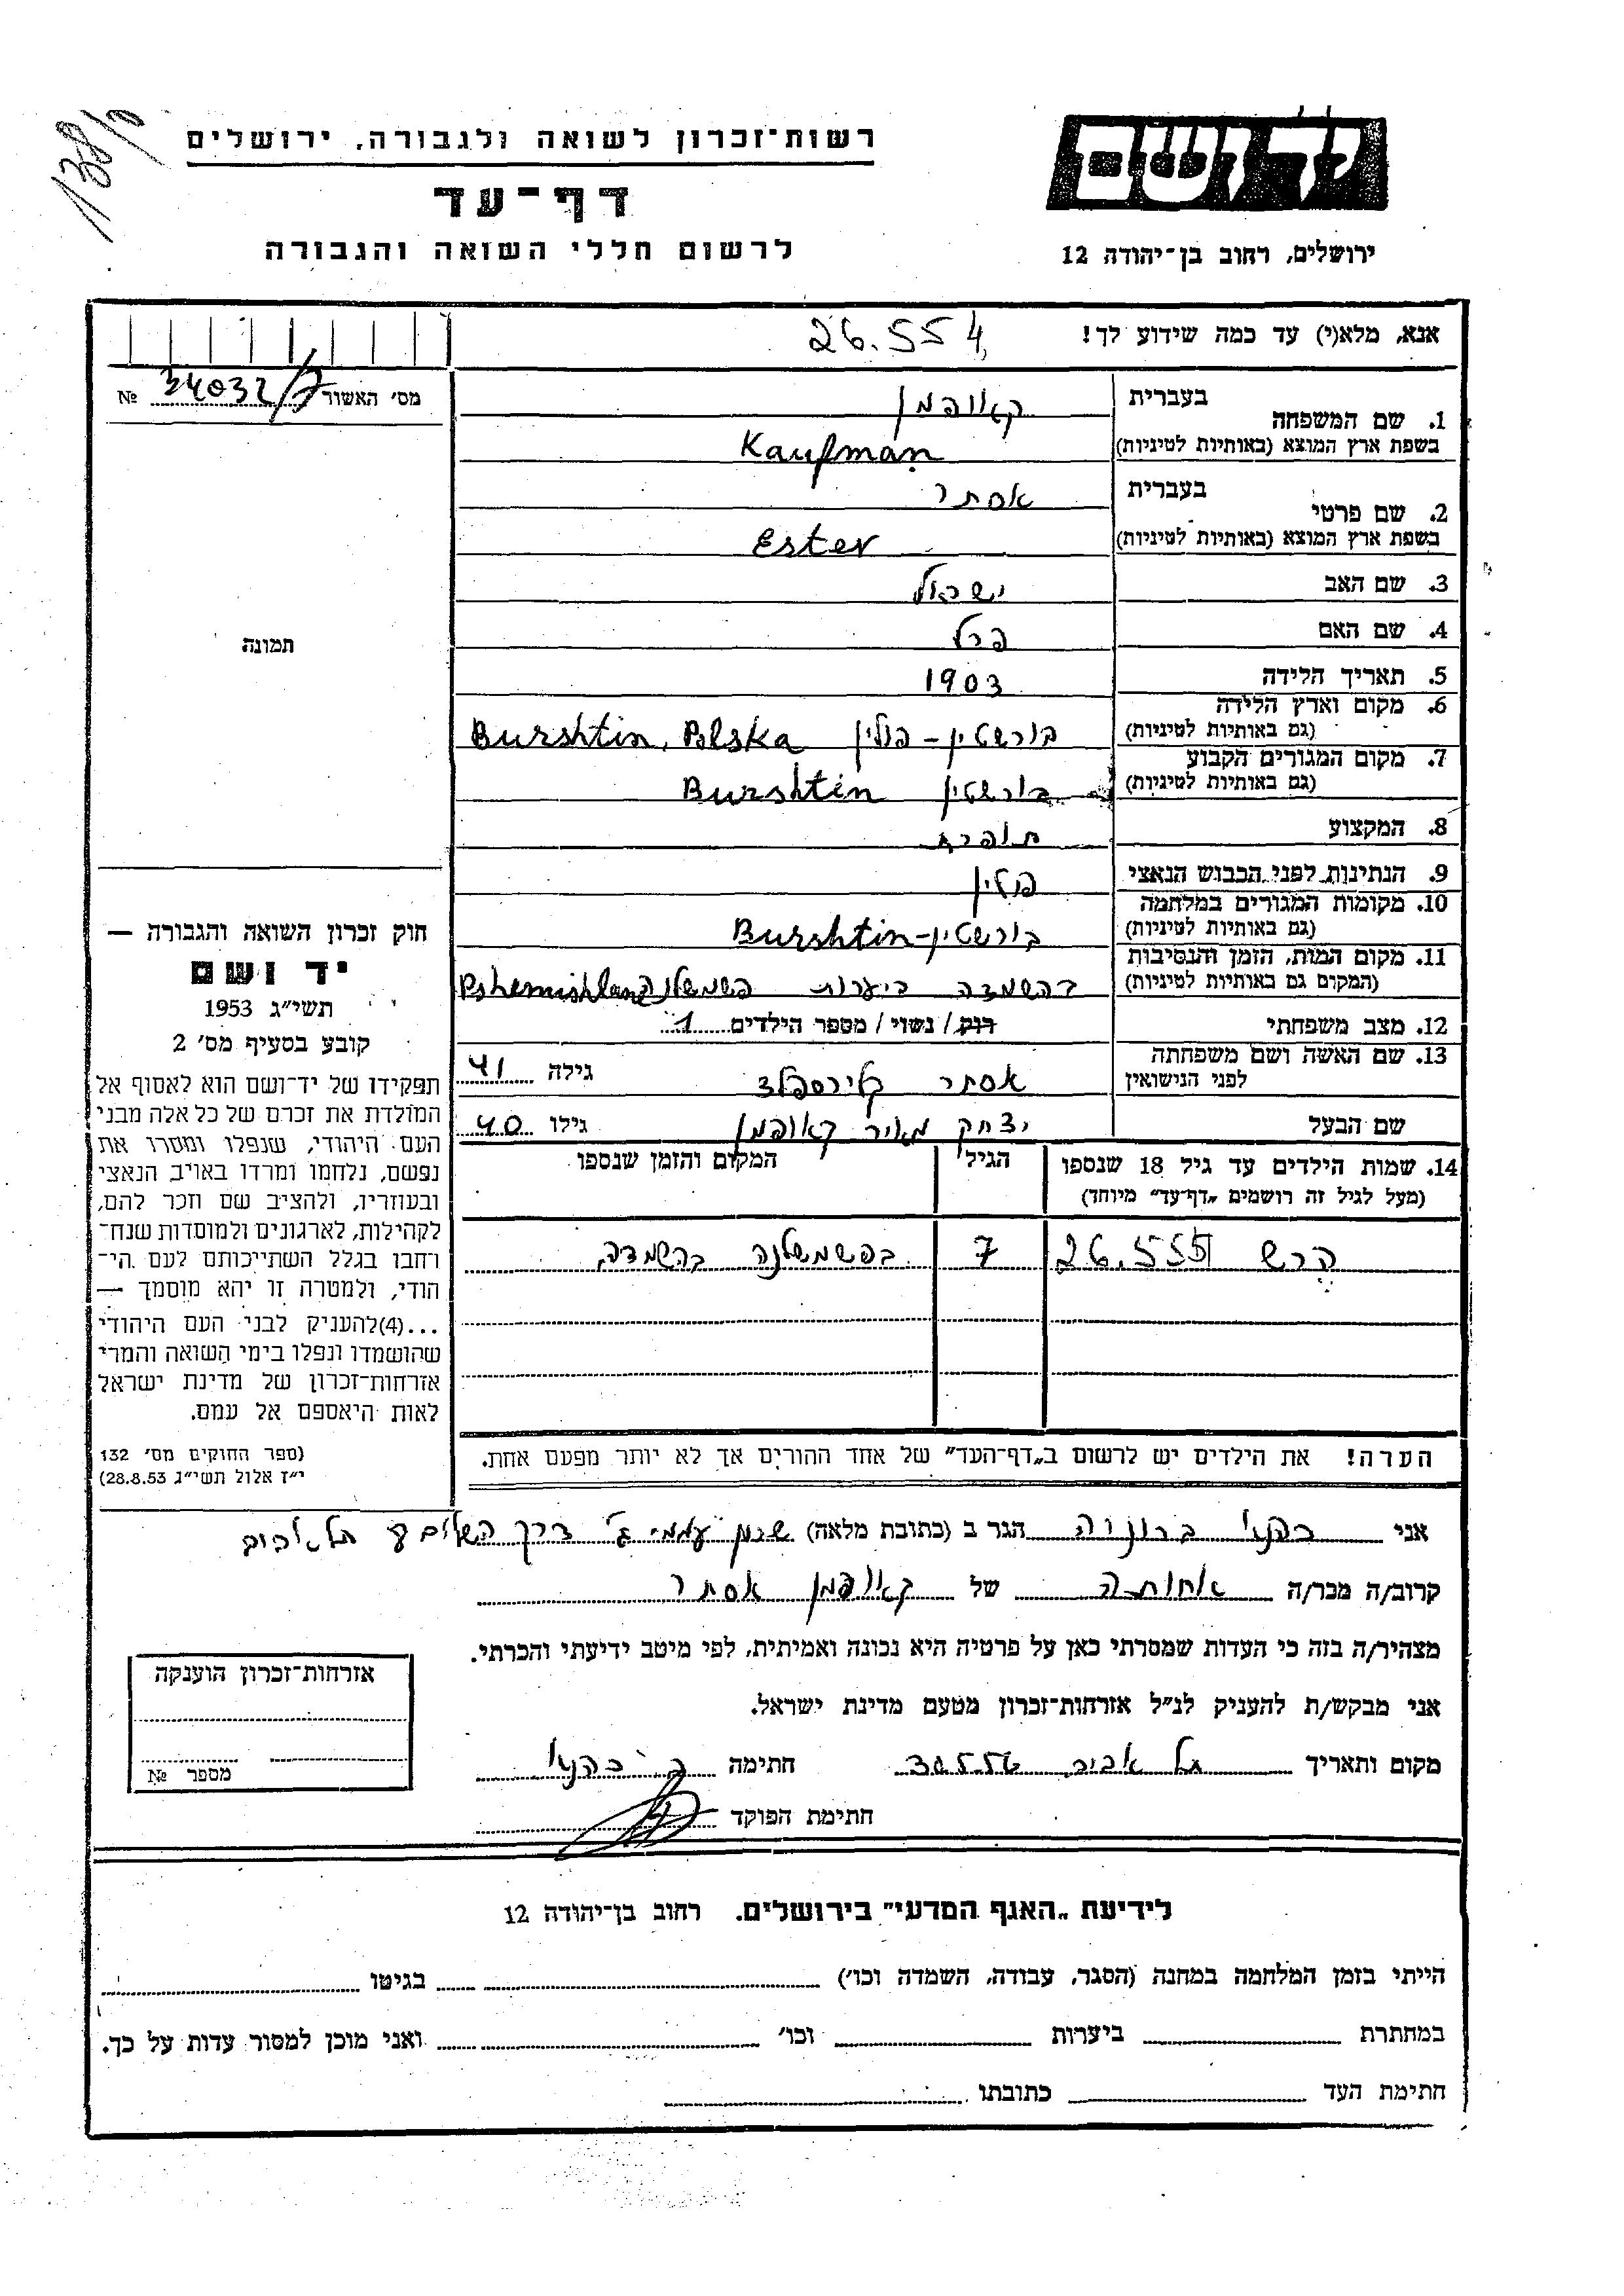 138/ק
רשות־זכרון לשואה ולגבורה, ירושלים
דף־עד
לרשום חללי השואה והגבורה
יד ושם
ירושלים, רחוב בן־יהודה 12
אנא, מלא(י) עד כמה שידוע לך! 26.554
מס׳ האשור 34032/7 №
1. שם המשפחה בעברית קאופמן
בשפת ארץ המוצא (באותיות לטיניות) Kaufman
2. שם פרטי בעברית אסתר
בשפת ארץ המוצא (באותיות לטיניות) Ester
3. שם האב ישראל
4. שם האם פרל
5. תאריך הלידה 1903
6. מקום וארץ הלידה (גם באותיות לטיניות) בורשטין - פולין Burshtin, Polska
7. מקום המגורים הקבוע (גם באותיות לטיניות) בורשטין Burshtin
8. המקצוע תופרת
9. הנתינות לפני הכבוש הנאצי פולין
10. מקומות המגורים במלחמה (גם באותיות לטיניות) בורשטין - Burshtin
11. מקום המות, הזמן והנסיבות (המקום גם באותיות לטיניות) בהשמדה ביערות פשמשלנה Pshemishlana
12. מצב משפחתי רוק / נשוי / מספר הילדים 1
13. שם האשה ושם משפחתה לפני הנישואין אסתר גילה 41
שם הבעל יצחק מאיר קאופמן גילו 40
14. שמות הילדים עד גיל 18 שנספו (מעל לגיל זה רושמים „דף־עד” מיוחד) הגיל המקום והזמן שנספו
הרש 26.555 7 בפשמשלנה בהשמדה
הערה! את הילדים יש לרשום ב„דף־העד” של אחד ההורים אך לא יותר מפעם אחת.
תמונה
חוק זכרון השואה והגבורה —
יד ושם
תשי״ג 1953
קובע בסעיף מס׳ 2
תפקידו של יד־ושם הוא לאסוף אל
המולדת את זכרם של כל אלה מבני
העם היהודי, שנפלו ומסרו את
נפשם, נלחמו ומרדו באויב הנאצי
ובעוזריו, ולהציב שם וזכר להם,
לקהילות, לארגונים ולמוסדות שנח־
רחבו בגלל השתייכותם לעם הי־
הודי, ולמטרה זו יהא מוסמך —
...(4)להעניק לבני העם היהודי
שהושמדו ונפלו בימי השואה והמרי
אזרחות־זכרון של מדינת ישראל
לאות היאספם אל עמם.
(ספר החוקים מס׳ 132
י״ז אלול תשי״ג 28.8.53)
אני ברוניה הגר ב (כתובת מלאה) שכון עממי ג׳ דרך השלום תל אביב
קרוב/ה מכר/ה אחותה של קאופמן אסתר
מצהיר/ה בזה כי העדות שמסרתי כאן על פרטיה היא נכונה ואמיתית, לפי מיטב ידיעתי והכרתי.
אני מבקש/ת להעניק לנ״ל אזרחות־זכרון מטעם מדינת ישראל.
מקום ותאריך תל אביב 30.5.56 חתימה
חתימת הפוקד
אזרחות־זכרון הוענקה
מספר №
לידיעת „האגף המדעי” בירושלים. רחוב בן־יהודה 12
הייתי בזמן המלחמה במחנה (הסגר, עבודה, השמדה וכו׳) בגיטו
במחתרת ביערות וכו׳ ואני מוכן למסור עדות על כך.
חתימת העד כתובתו